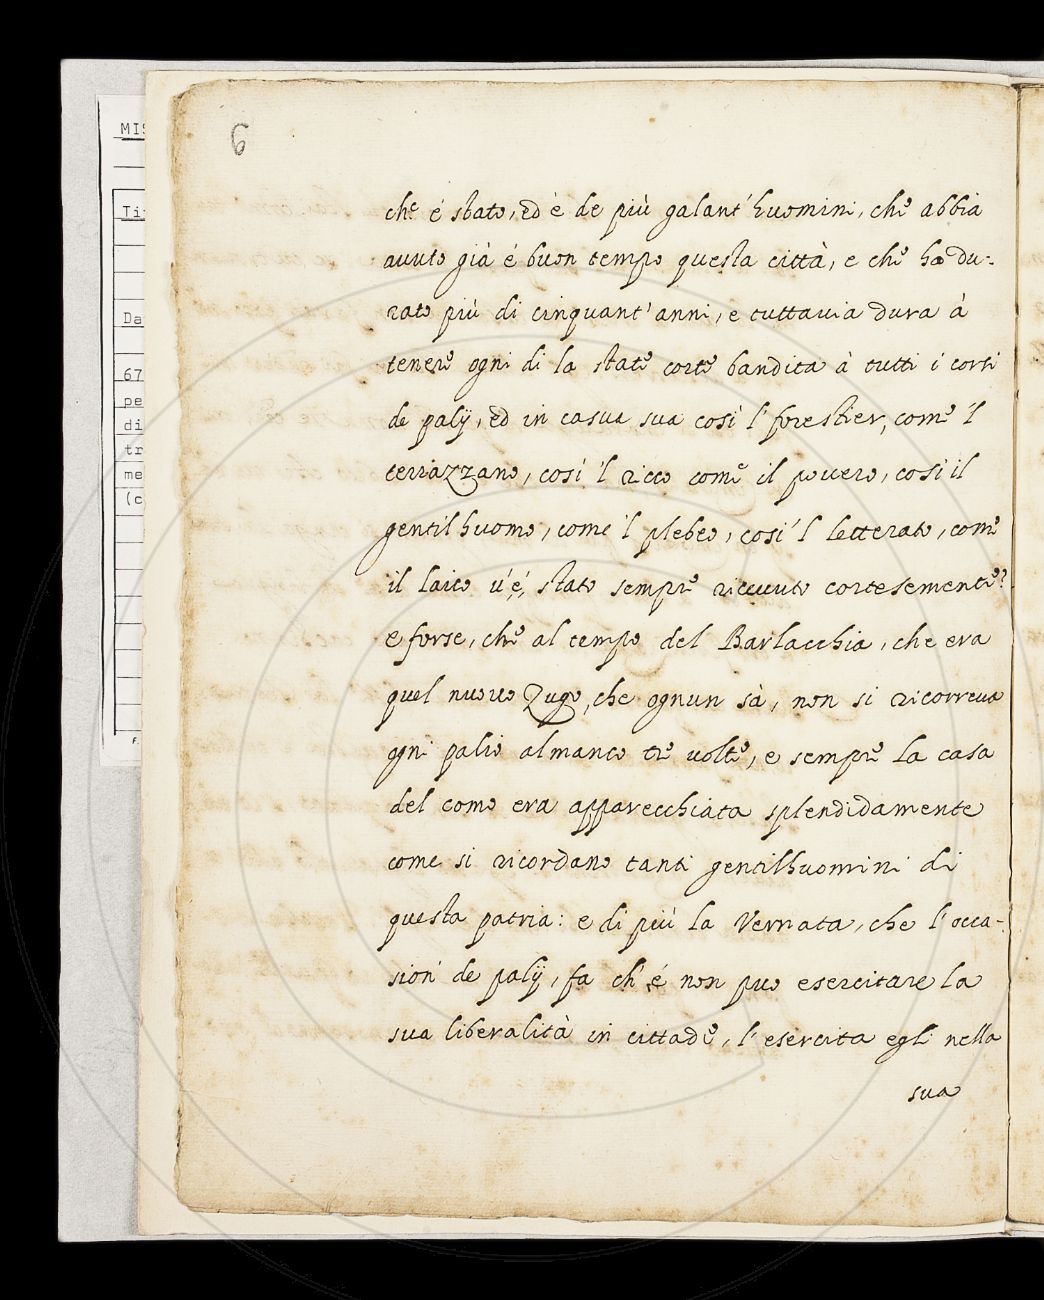 6
MIS
Ti
Da
67
pe
di
tr
me
(c
che é stato, ed è de più galant'huomini, che abbia
auuto già é buon tempo questa città, e che ha du-
rato più di cinquant'anni, e tuttauia dura à
tenere ogni di la state corte bandita à tutti i corsi
de palÿ, ed in casua sua così l' forestier, come 'l
terrazzano, così 'l ricco come il pouero, così il
gentilhuomo, come 'l plebeo, così 'l letterato, come
il laico u'é, stato sempre riceuuto cortesemente?
e forse, che al tempo del Barlacchia, che era
quel nuouo Zugo, che ognun sà, non si ricorreua
ogni palio almanco tre uolte, e sempre la casa
del como era apparecchiata splendidamente
come si ricordano tanti gentilhuomini di
questa patria: e di più la Vernata, che l'occa-
sion' de palÿ, fa ch' é non puo esercitare la
sua liberalità in cittade, l'esercita egli nella
sua